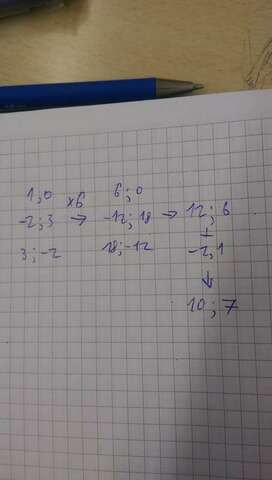 1;0 x6 6;0
-2;3 → -12;18 → 12;6
3;-2 18;-12 +
-2;1
↓
10;7